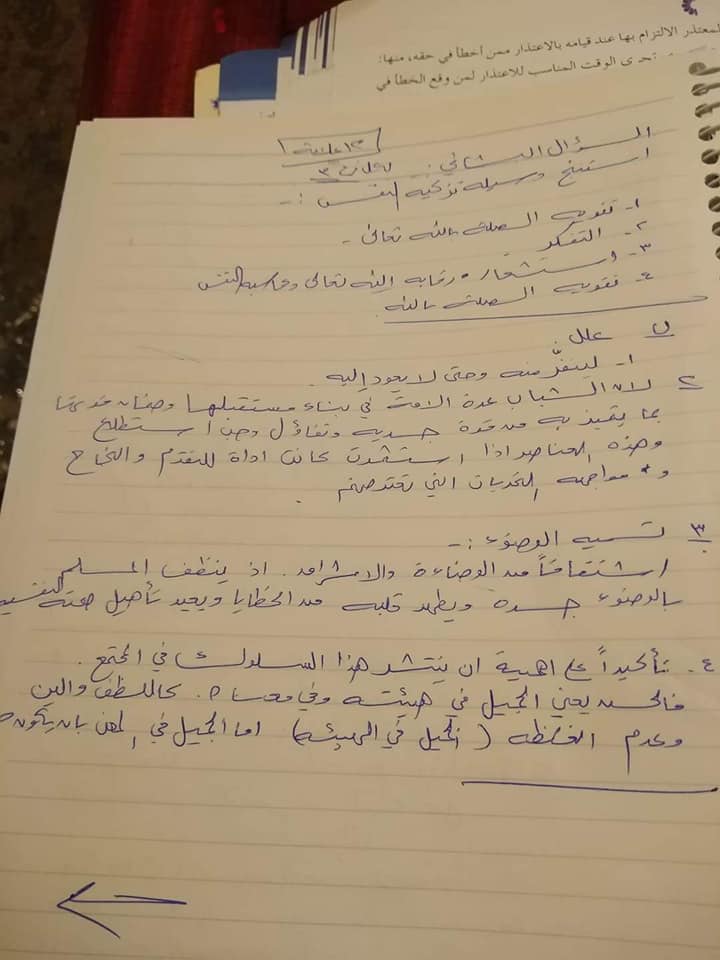 المعتذر الالتزام بها عند قيامه بالاعتذار ممن أخطأ في حقه، منها:
تحرى الوقت المناسب للاعتذار لمن وقع الخطأ في
١٣ علامة
السؤال الثاني: ٣
استنتج وسيلة تزكية النفس :-
١- تقوية الصلة بالله تعالى -
٢- التفكر
٣- استشعار رقابه الله تعالى ومحاسبه النفس
٤- تقويه الصلة بالله
علل
١- لينفّر منه وحتى لا يعود إليه.
٢ لان الشباب عدة الامة في بناء مستقبلها وضمان
بما يتميز به من قوة جسديه وتفاؤل وحب استطلاع
وهذه العناصر اذا استثمرت كانت اداة للتقدم والنجاح
و مواجهه التحديات التي تعترضهم.
٣ تسميه الوضوء :-
اشتقاقاً من الوضاءة والاشراق. اذ ينظف المسلم
بالوضوء جسده ويطهر قلبه من الخطايا ويعيد تأهيل صحته النفسيه
٤- تأكيداً على اهمية ان ينتشر هذا السلوك في المجتمع.
فالحسن يعني الجميل في هيئته وفي معناه. كاللطف والين
وعدم الغلظه (الجميل في الهيئه) اما الجميل في بان يكون